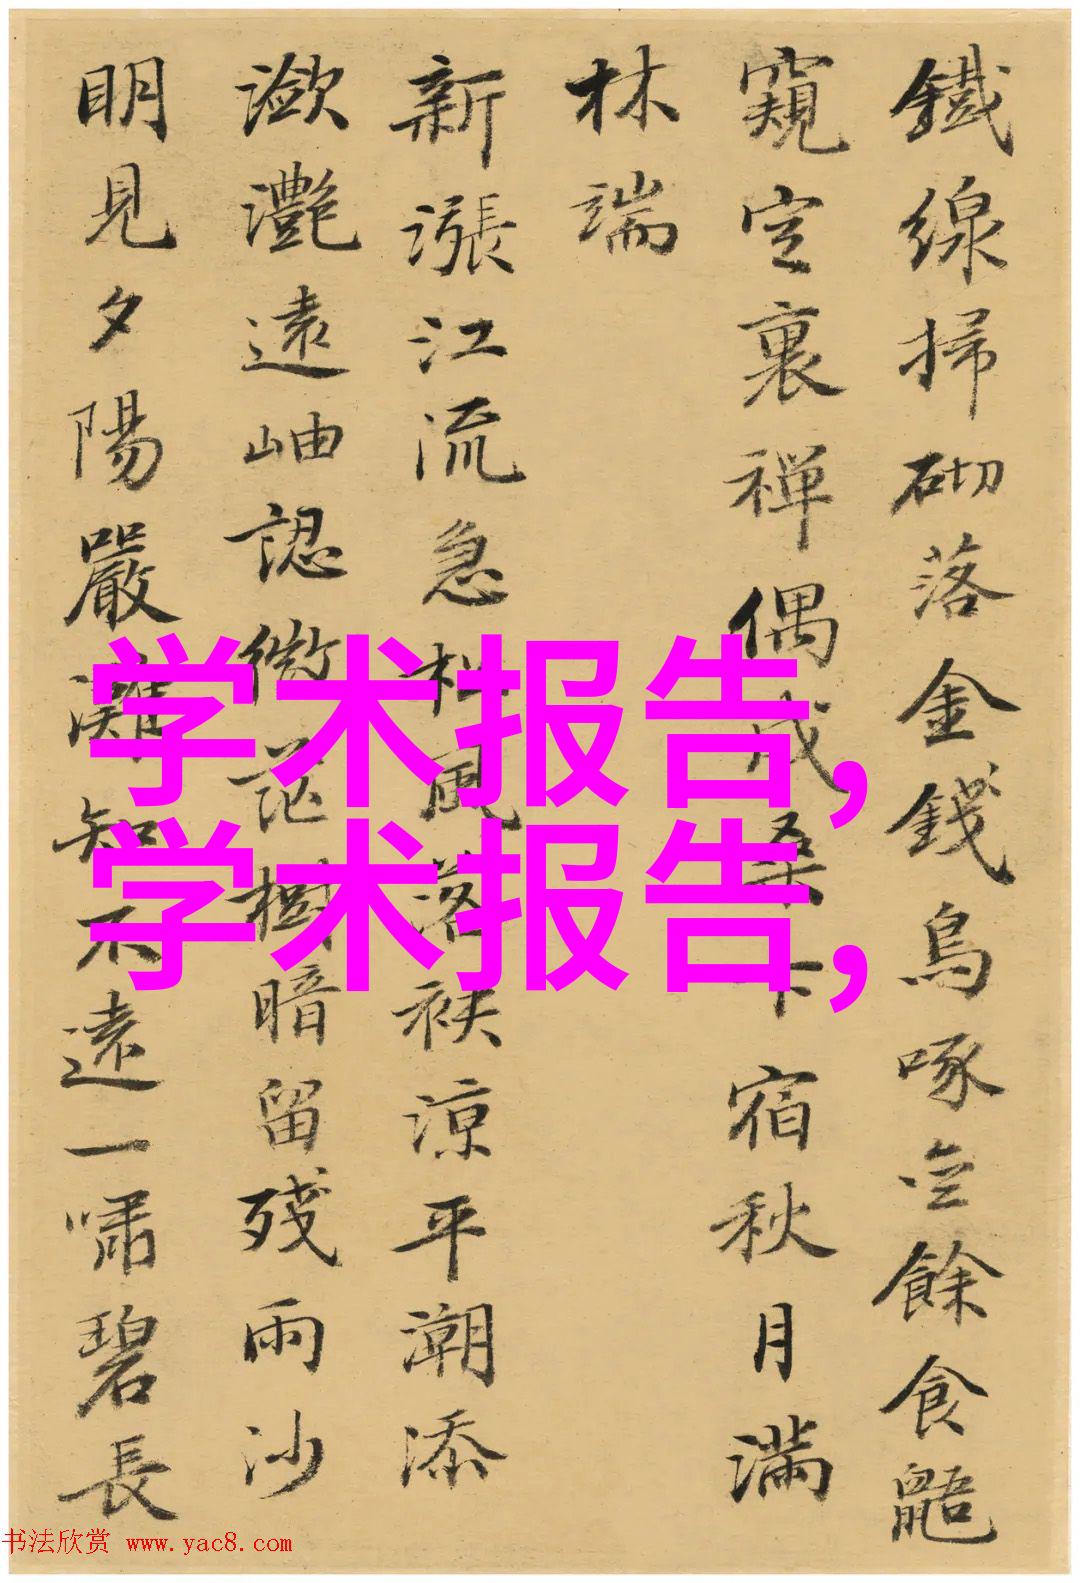 鐵線掃砌落金錢烏啄餘食鼯
窺定裏禪偶成桑下宿秋月滿
林端
新漲江流急風落袂涼平潮添
瀲灧遠岫認微茫樹暗留殘雨沙
明見夕陽嚴灘知不遠一嘯碧長
学术报告,
学术报告,
书法欣赏 www.yac8.com